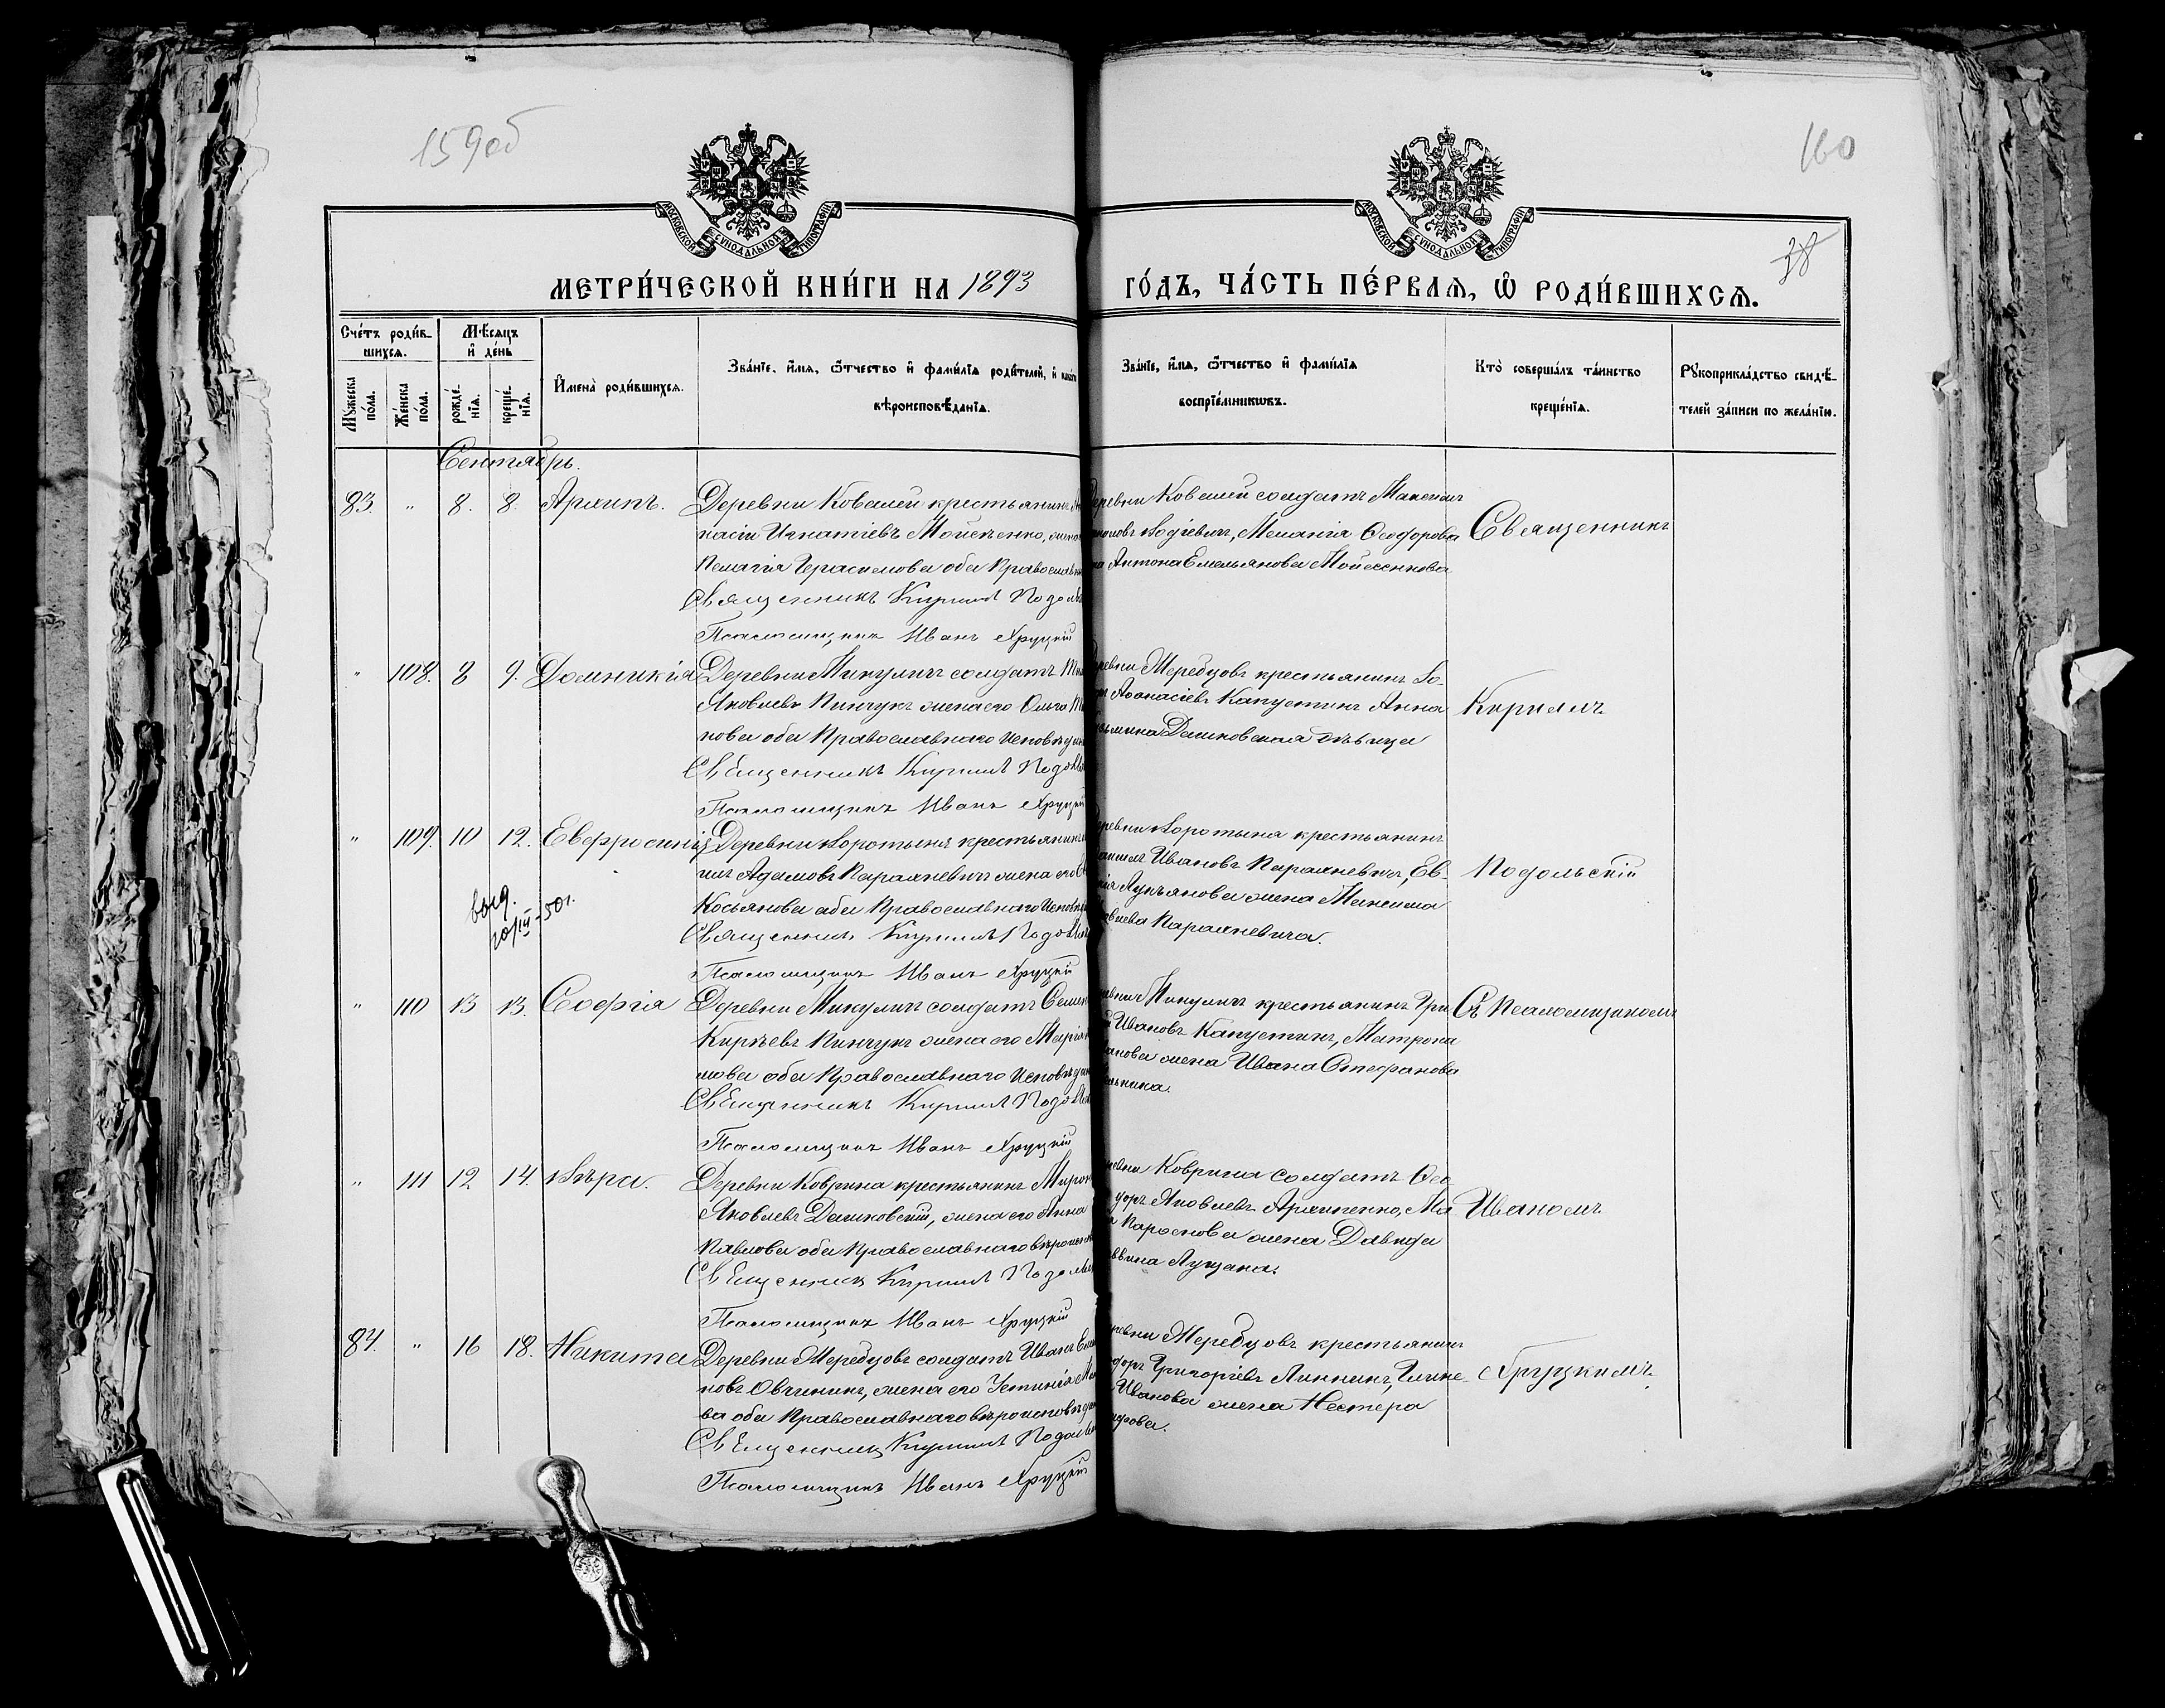 159об
160
МОСКОВСКОЙ СѴНОДАЛЬНОЙ ТИПОГРАФІИ
МОСКОВСКОЙ СѴНОДАЛЬНОЙ ТИПОГРАФІИ
38
МЕТРИ́ЧЕСКОЙ КНИ́ГИ НА 1893
ГО́ДЪ, ЧА́СТЬ ПЕ́РВАѦ, Ѡ҆ РОДИ́ВШИХСѦ.
Сче́тъ роди́в-
шихсѧ.
Мѣ́сѧцъ
и҆ де́нь
Мꙋ́жеска по́ла.
Же́нска по́ла.
рожде́-нїѧ.
креще́-нїѧ.
И҆мена̀ роди́вшихсѧ.
Зва́нїе, и҆́мѧ, ѻ҆́тчество и҆ фами́лїѧ роди́телей, и҆
вѣроисповѣ́данїѧ.
Зва́нїе, и҆́мѧ, ѻ҆́тчество и҆ фами́лїѧ
воспрїе́мникѡвъ.
Кто̀ соверша́лъ та́инство
креще́нїѧ.
Рꙋкоприкла́дство свидѣ́-
телей за́писи по жела́нїю.
Сентябрь.
83. " 8. 8. Архипъ. Деревни Ковалей крестьянинъ
насій Игнатіевъ Мойсеенко, жена
Пелагія Герасимова оба Православн
Священникъ Кириллъ Подоль
Псаломщикъ Иванъ Хруцкій
Деревни Ковалей солдатъ Максимъ
Меланія Ѳеодорова
Антона Емельянова Мойсеенкова
Священникъ
" 108. 8 9. Домникія Деревни Микуличъ солдатъ
Яковлевъ Пинчукъ жена его Ольга
нова оба Православнаго Исповѣдан
Священникъ Кириллъ Подоль
Псаломщикъ Иванъ Хруцкій
ревни Жеребцовъ крестьянинъ
Аѳанасіевъ Капустинъ, Анна
Дашковская дѣвица
Кириллъ
" 109. 10 12. Евфросинія Деревни Воротына крестьянинъ
Адамовъ Парахневичъ жена его
Косьянова оба Православнаго Исповѣд
Священникъ Кириллъ Подоль
Псаломщикъ Иванъ Хруцкій
выд.
20/III-50г.
ревни Воротына крестьянинъ
Ивановъ Парахневичъ, Ев-
Лукьянова жена Максима
Парахневича.
Подольскій
" 110 13 13. Софія Деревни Микуличъ солдатъ Семенъ
Кирѣевъ Пинчукъ жена его Марія
мова оба Православнаго Исповѣдан
Священникъ Кириллъ Подоль
Псаломщикъ Иванъ Хруцкій
Микуличъ крестьянинъ Гри
Ивановъ Капустинъ, Матрона
жена Ивана Стефанова
Съ Псаломщикомъ
" 111 12 14. Вѣра. Деревни Коврина крестьянинъ Миронъ
Яковлевъ Дашковскій, жена его Анна
Павлова оба Православнаго вѣроиспов
Священникъ Кириллъ Подоль
Псаломщикъ Иванъ Хруцкій
Коврина солдатъ Ѳео
доръ Яковлевъ Архипенко, Ма
жена Давида
Лущана.
Иваномъ
84. " 16 18. Никита Деревни Жеребцовъ солдатъ Иванъ
новъ Овчининъ, жена его Устинія
ва оба Православнаго вѣроисповѣдан
Священникъ Кириллъ Подоль
Псаломщикъ Иванъ Хруцкій
ревни Жеребцовъ крестьянинъ
доръ Григоріевъ Линникъ, Глике-
Иванова жена Нестера
Хруцкимъ.